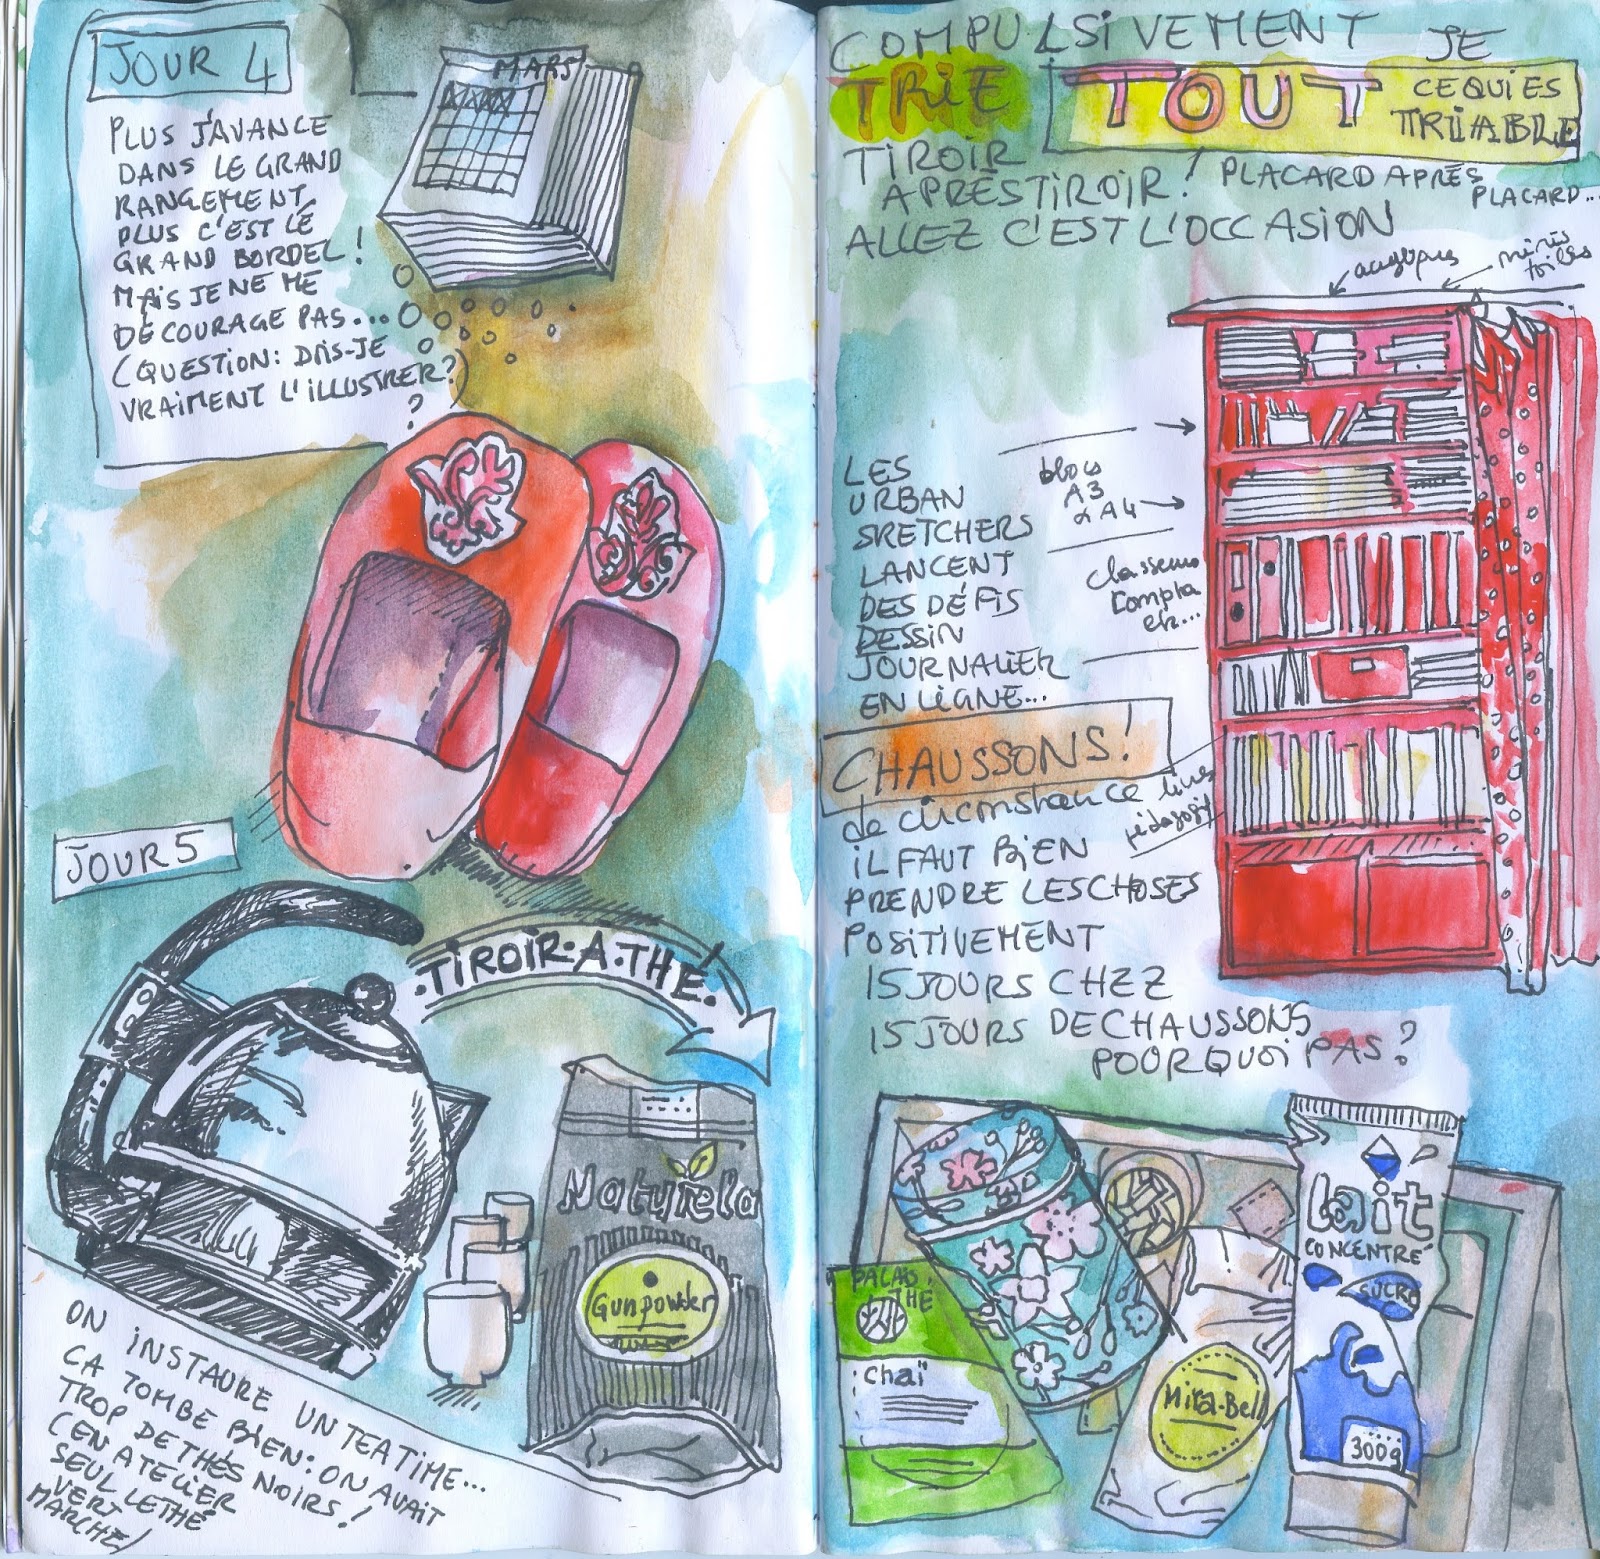 JOUR 4
PLUS J'AVANCE
DANS LE GRAND
RANGEMENT
PLUS C'EST LE
GRAND BORDEL!
MAIS JE NE ME
DÉCOURAGE PAS...
(QUESTION: DOIS-JE
VRAIMENT L'ILLUSTRER?)
?
MARS
JOUR 5
.TIROIR.A.THÉ.
Naturela
Gunpowder
ON INSTAURE UN TEATIME...
CA TOMBE BIEN: ON AVAIT
TROP DE THÉS NOIRS!
(EN ATELIER
SEUL LE THÉ
VERT
MARCHE)
COMPULSIVEMENT JE
TRIE TOUT CE QUI ES
TRIABLE
TIROIR
APRÈS TIROIR! PLACARD APRÈS
PLACARD...
ALLEZ C'EST L'OCCASION
minis
toiles
LES
URBAN
SKETCHERS
LANCENT
DES DÉFIS
DESSIN
JOURNALIER
EN LIGNE...
blocs
A3
& A4
Classeurs
Compta
etc...
CHAUSSONS!
de circonstance
livres
pédagogiq
IL FAUT BIEN
PRENDRE LES CHOSES
POSITIVEMENT
15 JOURS CHEZ
15 JOURS DE CHAUSSONS
POURQUOI PAS?
PALAIS.
THÉ
Chaï
Mira-Bell
lait
CONCENTRÉ
SUCRÉ
300g